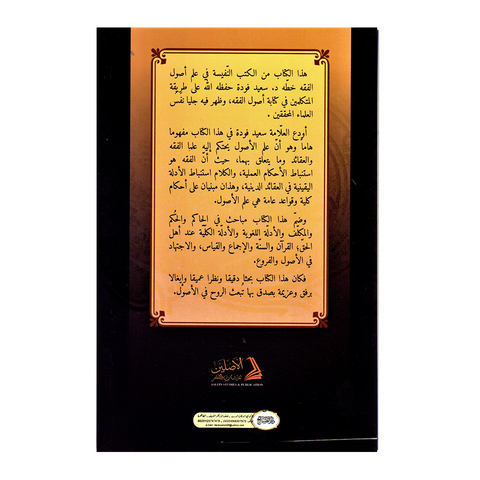 هذا الكتاب من الكتب النّفيسة في علم أصول
الفقه خطّه د. سعيد فودة حفظه الله على طريقة
المتكلمين في كتابة أصول الفقه، وظهر فيه جليا نَفَسُ
العلماء المحققين .
أودع العلّامة سعيد فودة في هذا الكتاب مفهوما
هاماً وهو أنّ علم الأصول يحتكم إليه علما الفقه
والعقائد وما يتعلق بهما، حيث أنّ الفقه هو
استنباط الأحكام العملية، والكلام استنباط الأدلة
اليقينية في العقائد الدينية، وهذان مبنيان على أحكام
كلية وقواعد عامة هي علم الأصول.
وضمّ هذا الكتاب مباحث في الحاكم والحُكم
والمكلَّف والأدلّة اللغوية والأدلّة الكلّية عند أهل
الحق؛ القرآن والسنّة والإجماع والقياس، والاجتهاد
في الأصول والفروع.
فكان هذا الكتاب بحثا دقيقا ونظرا عميقا وإيغالا
برفق وعزيمة بصدق بها تُبعث الروح في الأصول.
الأصلين
ASLEIN STUDIES & PUBLICATION